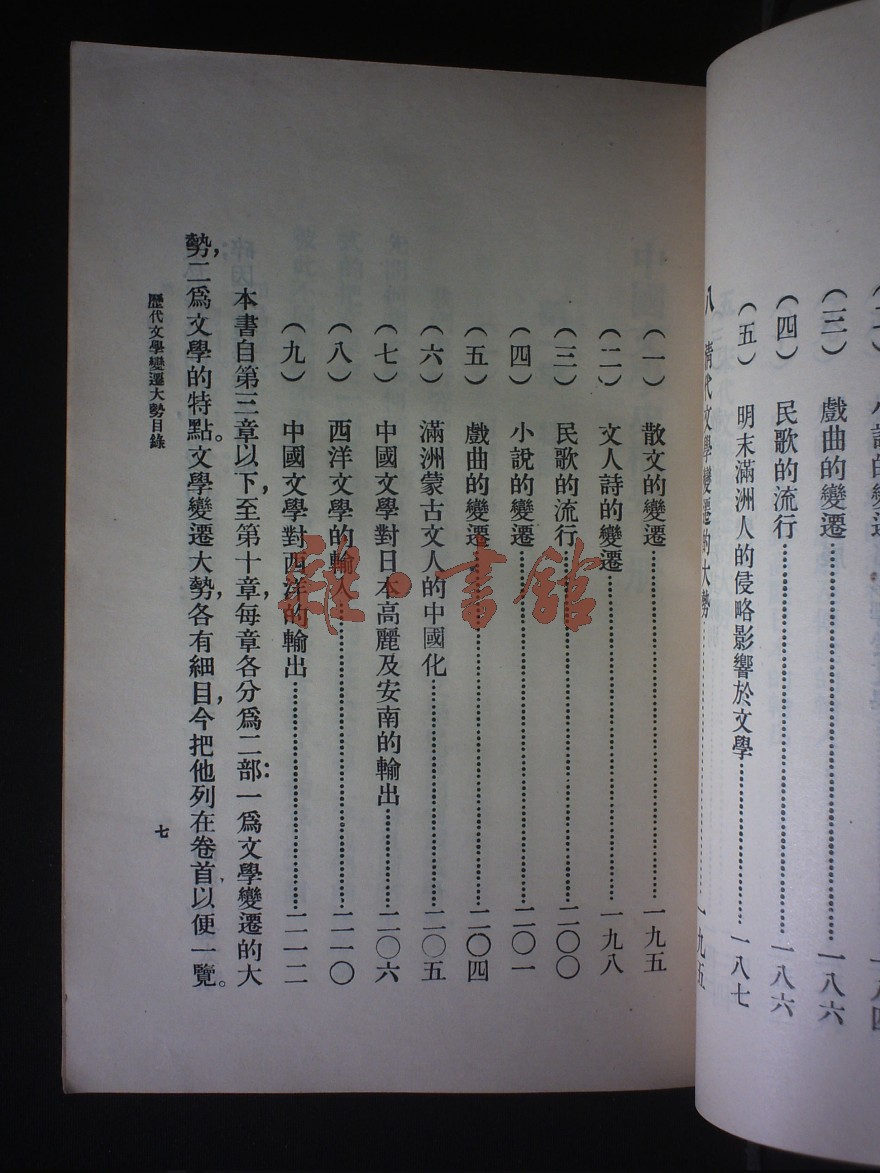 (三) 戲曲的變遷……一八六
(四) 民歌的流行……一八六
(五) 明末滿洲人的侵略影響於文學……一八七
八 清代文學變遷的大勢……一九五
(一) 散文的變遷……一九五
(二) 文人詩的變遷……一九八
(三) 民歌的流行……二〇〇
(四) 小說的變遷……二〇一
(五) 戲曲的變遷……二〇四
(六) 滿洲蒙古文人的中國化……二〇五
(七) 中國文學對日本高麗及安南的輸出……二〇六
(八) 西洋文學的輸入……二一〇
(九) 中國文學對西洋的輸出……二一二
本書自第三章以下,至第十章,每章各分爲二部:一爲文學變遷的大
勢,二爲文學的特點。文學變遷大勢,各有細目,今把他列在卷首以便一覽。
歷代文學變遷大勢目錄
七
雜·書館